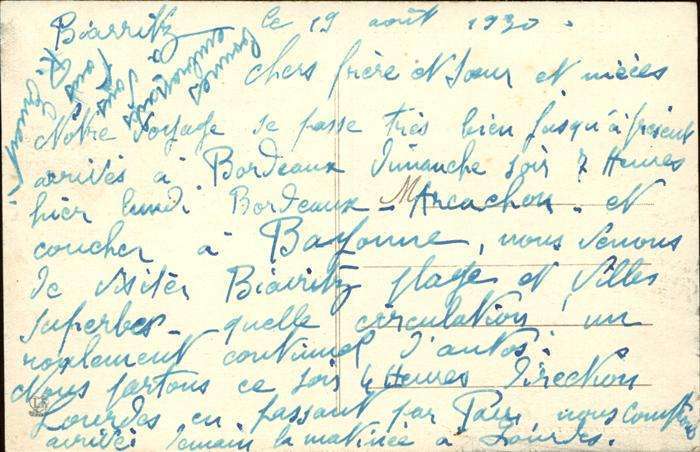 Biarritz le 19 août 1930.
Chers frère et soeur et nièces
Notre voyage se passe très bien jusqu'à présent
arrivés à Bordeaux Dimanche soir 7 Heures
hier lundi Bordeaux - Arcachon. et
coucher à Bayonne, nous venons
de visiter Biarritz plage et Villes
superbes - quelle circulation! un
roulement continuel d'autos.
Nous partons ce soir 4 Heures direction
Lourdes en passant par Pau, nous comptons
arriver demain la matinée à Lourdes.